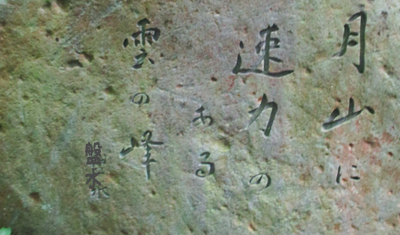 月山に
速力の
ある
雲の峰
盤水